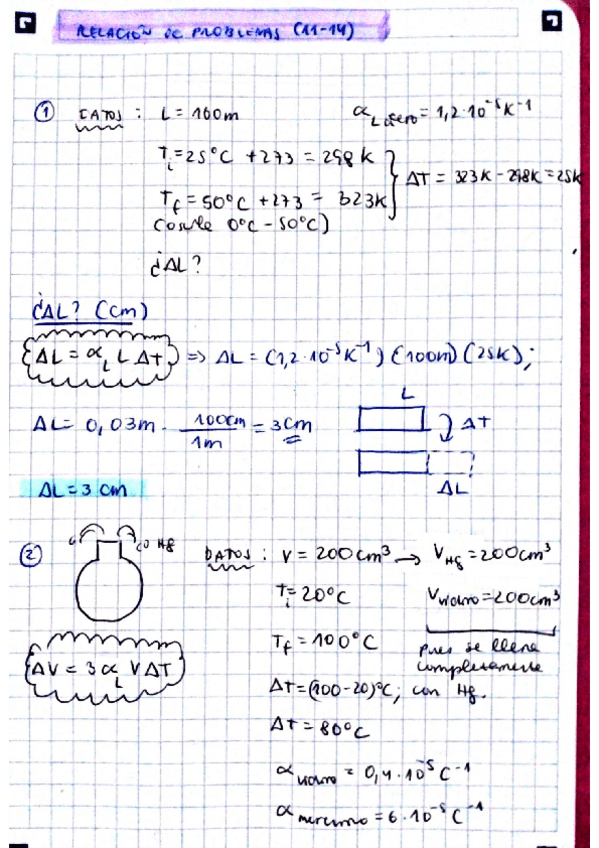 RELACIÓN DE PROBLEMAS (11-14)
① DATOS : L = 100m α L acero = 1,2·10⁻⁵ K⁻¹
Tᵢ = 25°C + 273 = 298 K
T_f = 50°C + 273 = 323K } ΔT = 323K - 298K = 25K
0°C - 50°C)
¿ΔL?
¿ΔL? (cm)
ΔL = α_L L ΔT ⇒ ΔL = (1,2·10⁻⁵K⁻¹) (100m) (25K);
ΔL = 0,03m · 100cm/1m = 3cm
L
ΔT
ΔL
ΔL = 3 cm
② Hg DATOS : V = 200cm³ → V_Hg = 200cm³
Tᵢ = 20°C V_vidrio = 200cm³
T_f = 100°C pues se llena
completamente
ΔV = 3α_L V ΔT ΔT = (100-20)°C; con Hg.
ΔT = 80°C
α vidrio = 0,4·10⁻⁵ C⁻¹
α mercurio = 6·10⁻⁵ C⁻¹